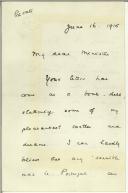 June 16. 1916
My dear Minister
Your letter has
come as a bomb-shell
shattering some of my
pleasantest castles and
dreams. I can hardly
believe that any
was in Portugal can